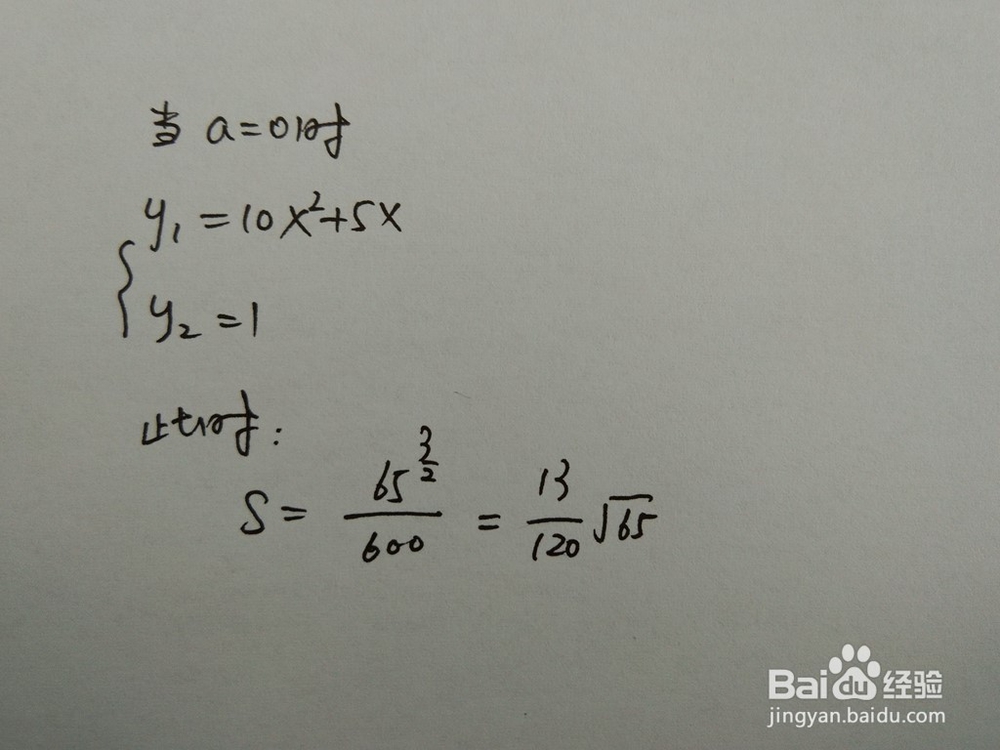 当 a=0时
y₁=10x²+5x
{
y₂=1
此时:
S= 65^(3/2)/600 = 13/120 √65
Bai du 经验
jingyan.baidu.com